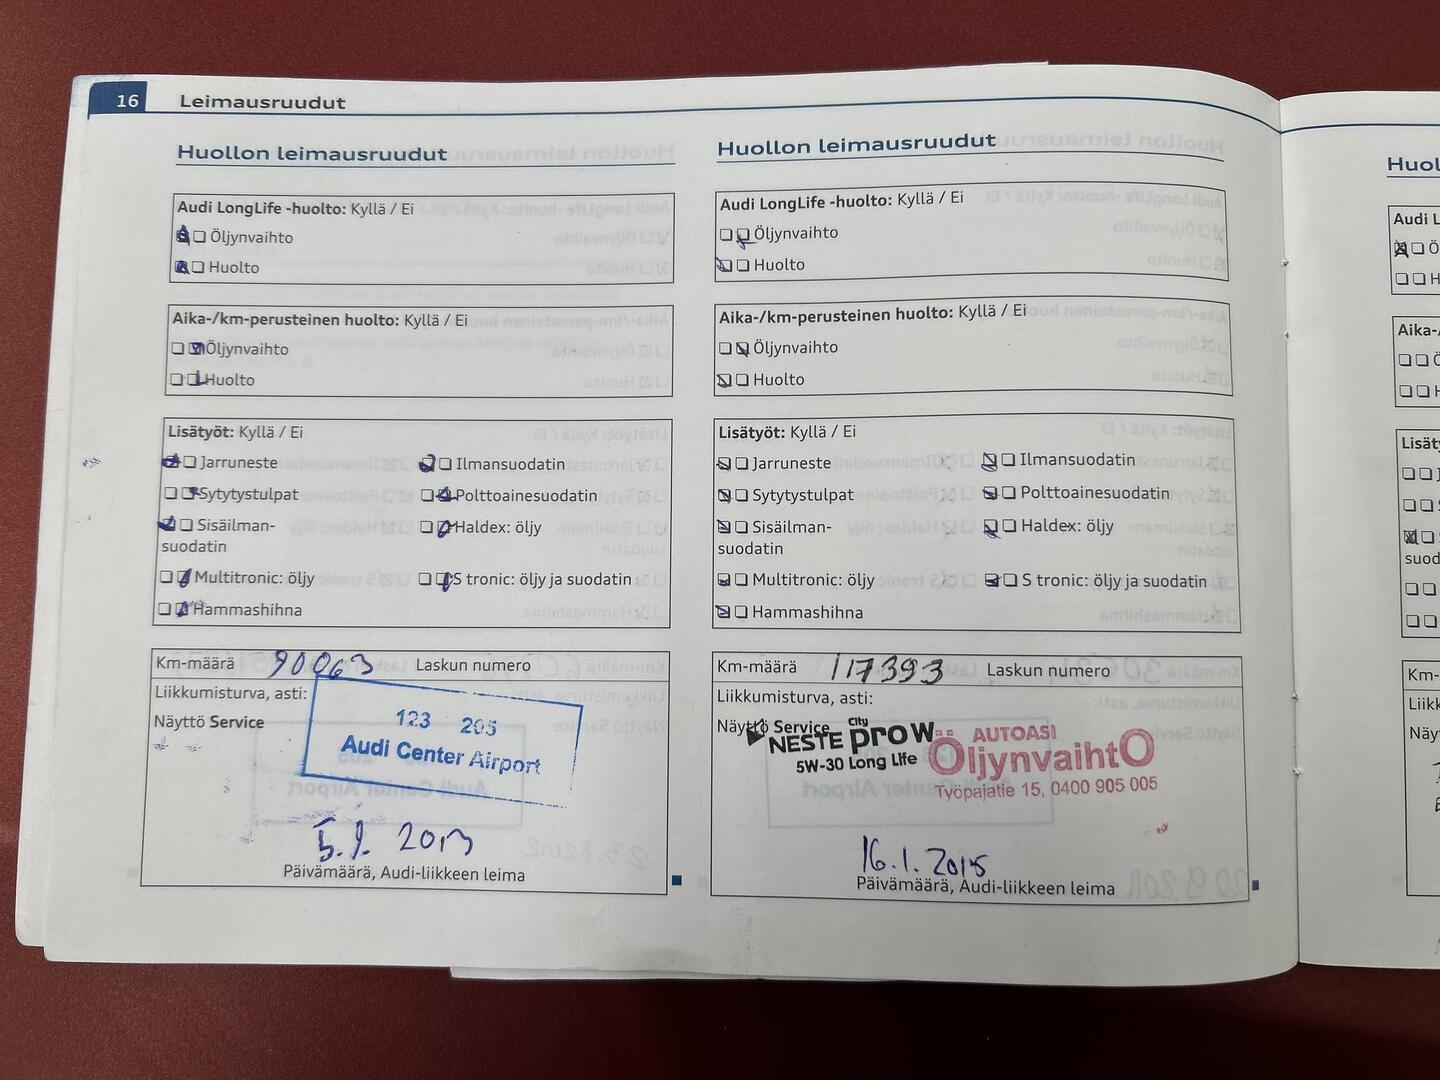 16 Leimausruudut
Huollon leimausruudut
Audi LongLife -huolto: Kyllä / Ei
Öljynvaihto
Huolto
Aika-/km-perusteinen huolto: Kyllä / Ei
Öljynvaihto
Huolto
Lisätyöt: Kyllä / Ei
Jarruneste
Ilmansuodatin
Sytytystulpat
Polttoainesuodatin
Sisäilman-
suodatin
Haldex: öljy
Multitronic: öljy
S tronic: öljy ja suodatin
Hammashihna
Km-määrä 90063 Laskun numero
Liikkumisturva, asti:
Näyttö Service
123 205
Audi Center Airport
5.9. 2013
Päivämäärä, Audi-liikkeen leima
Huollon leimausruudut
Audi LongLife -huolto: Kyllä / Ei
Öljynvaihto
Huolto
Aika-/km-perusteinen huolto: Kyllä / Ei
Öljynvaihto
Huolto
Lisätyöt: Kyllä / Ei
Jarruneste
Ilmansuodatin
Sytytystulpat
Polttoainesuodatin
Sisäilman-
suodatin
Haldex: öljy
Multitronic: öljy
S tronic: öljy ja suodatin
Hammashihna
Km-määrä 117393 Laskun numero
Liikkumisturva, asti:
Näyttö Service
City
NESTE PROW
5W-30 Long Life
AUTOASI
ÖljynvaihtO
Työpajatie 15, 0400 905 005
16.1.2015
Päivämäärä, Audi-liikkeen leima